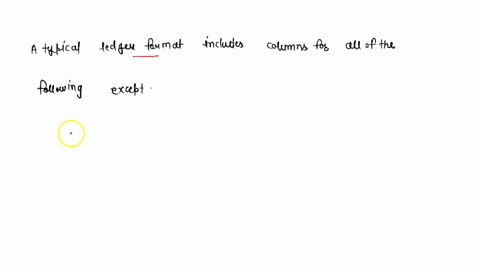 A typical ledger format includes columns for all of the
following except.